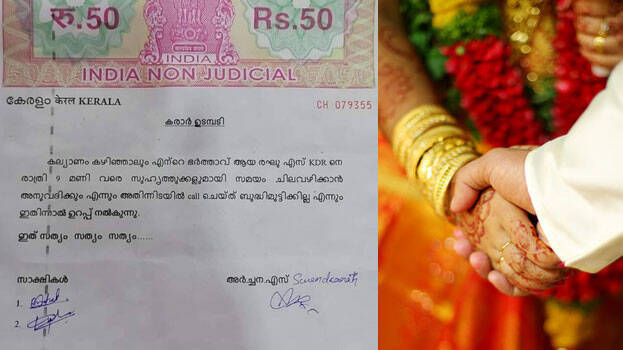 रु.50 Rs.50
INDIA
INDIA NON JUDICIAL
കേരളം केरल KERALA CH 079355
കരാർ ഉടമ്പടി
കല്യാണം കഴിഞ്ഞാലും എന്റെ ഭർത്താവ് ആയ രഘു എസ് KDR നെ
രാത്രി 9 മണി വരെ സുഹൃത്തുക്കളുമായി സമയം ചിലവഴിക്കാൻ
അനുവദിക്കും എന്നും അതിന്നിടയിൽ call ചെയ്ത് ബുദ്ധിമുട്ടിക്കില്ല എന്നും
ഇതിനാൽ ഉറപ്പ് നൽകുന്നു.
ഇത് സത്യം സത്യം സത്യം......
സാക്ഷികൾ അർച്ചന.എസ്
1.
2.